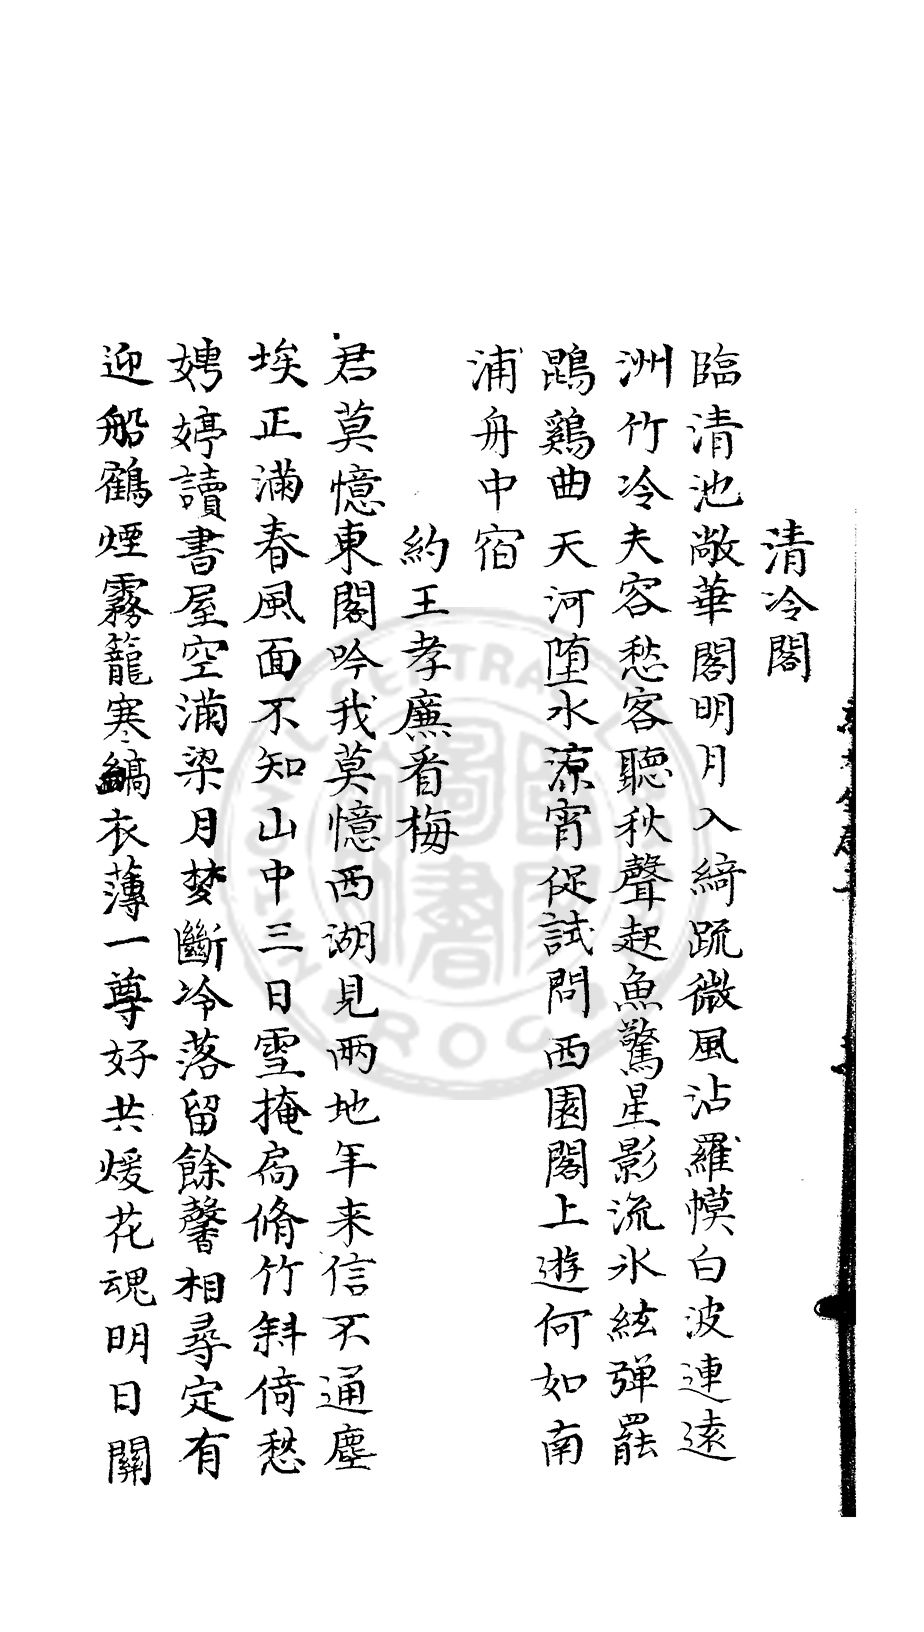 清冷閣
臨清池敞華閣明月入綺疏微風沾羅幙白波連遠
洲竹冷夫容愁客聽秋聲起魚驚星影流氷絃彈罷
鵾鷄曲天河堕水涼宵促試問西園閣上遊何如南
浦舟中宿
約王孝廉看梅
君莫憶東閣吟我莫憶西湖見兩地年来信不通塵
埃正滿春風面不知山中三日雪掩扃脩竹斜倚愁
娉婷讀書屋空滿梁月梦斷冷落留餘馨相尋定有
迎船鶴煙霧籠寒縞衣薄一尊好共煖花魂明日關